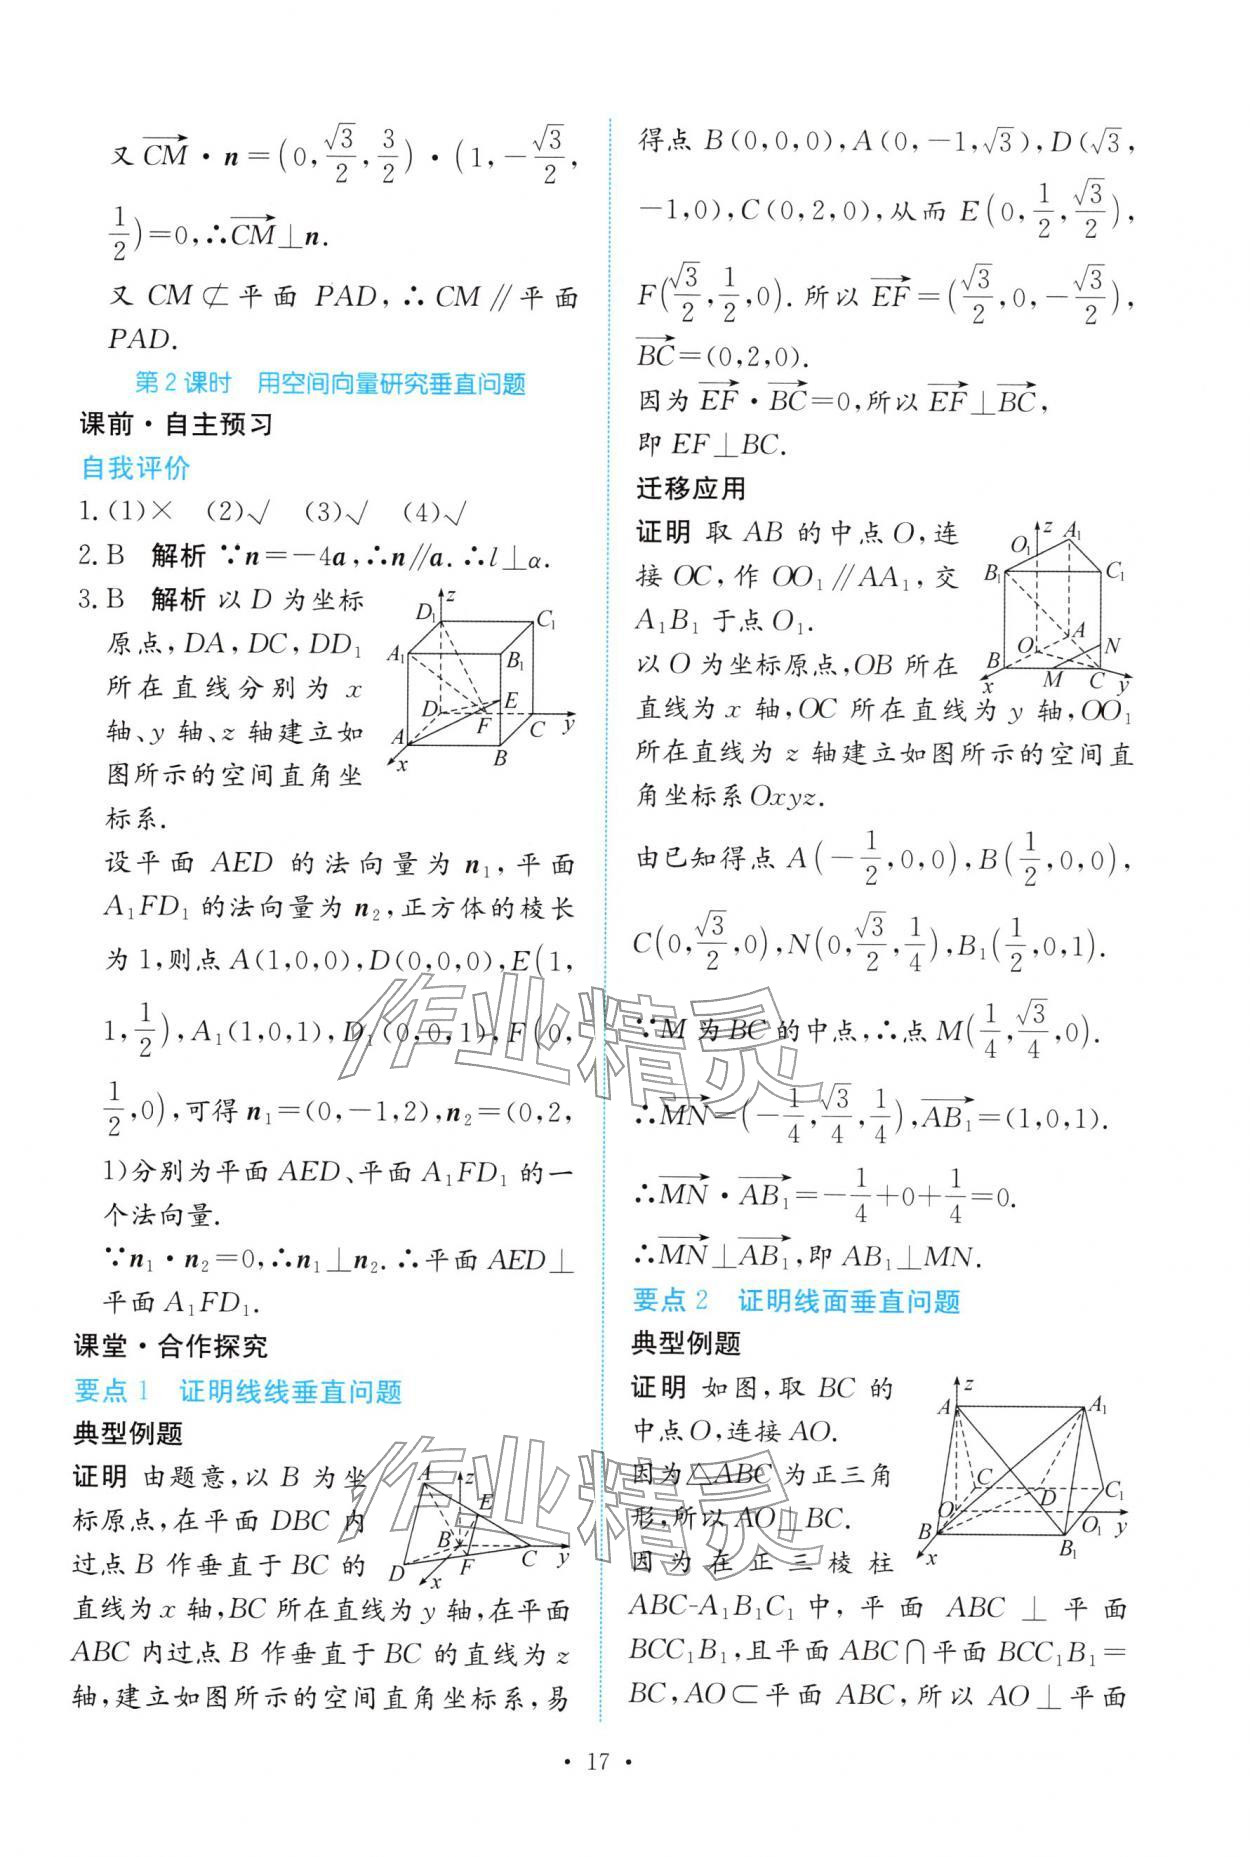 又 CM · n=(0,√3/2,3/2)·(1,-√3/2,
1/2)=0,∴CM⊥n.
又 CM⊄平面 PAD,∴CM∥平面
PAD.
第2课时 用空间向量研究垂直问题
课前·自主预习
自我评价
1.(1)× (2)√ (3)√ (4)√
2.B 解析 ∵n=-4a,∴n∥a.∴l⊥α.
3.B 解析 以 D 为坐标
原点,DA,DC,DD₁
所在直线分别为 x
轴、y 轴、z 轴建立如
图所示的空间直角坐
标系.
z
D₁
C₁
A₁
B₁
E
D
F
C
y
A
B
x
设平面 AED 的法向量为 n₁,平面
A₁FD₁ 的法向量为 n₂,正方体的棱长
为 1,则点 A(1,0,0),D(0,0,0),E(1,
1,1/2),A₁(1,0,1),D₁(0,0,1),F(0,
1/2,0),可得 n₁=(0,-1,2),n₂=(0,2,
1)分别为平面 AED、平面 A₁FD₁ 的一
个法向量.
∵n₁·n₂=0,∴n₁⊥n₂.∴平面 AED⊥
平面 A₁FD₁.
课堂·合作探究
要点 1 证明线线垂直问题
典型例题
证明 由题意,以 B 为坐
标原点,在平面 DBC 内
过点 B 作垂直于 BC 的
直线为 x 轴,BC 所在直线为 y 轴,在平面
ABC 内过点 B 作垂直于 BC 的直线为 z
轴,建立如图所示的空间直角坐标系,易
A
z
E
B
D
F
C
y
x
得点 B(0,0,0),A(0,-1,√3),D(√3,
-1,0),C(0,2,0),从而 E(0,1/2,√3/2),
F(√3/2,1/2,0).所以 EF=(√3/2,0,-√3/2),
BC=(0,2,0).
因为 EF·BC=0,所以 EF⊥BC,
即 EF⊥BC.
迁移应用
证明 取 AB 的中点 O,连
接 OC,作 OO₁∥AA₁,交
A₁B₁ 于点 O₁.
以 O 为坐标原点,OB 所在
直线为 x 轴,OC 所在直线为 y 轴,OO₁
所在直线为 z 轴建立如图所示的空间直
角坐标系 Oxyz.
z
A₁
O₁
B₁
C₁
A
O
N
B
M
C
x
y
由已知得点 A(-1/2,0,0),B(1/2,0,0),
C(0,√3/2,0),N(0,√3/2,1/4),B₁(1/2,0,1).
∵M 为 BC 的中点,∴点 M(1/4,√3/4,0).
∴MN=(-1/4,√3/4,1/4),AB₁=(1,0,1).
∴MN·AB₁=-1/4+0+1/4=0.
∴MN⊥AB₁,即 AB₁⊥MN.
要点 2 证明线面垂直问题
典型例题
证明 如图,取 BC 的
中点 O,连接 AO.
因为△ABC 为正三角
形,所以 AO⊥BC.
因为在正三棱柱
ABC-A₁B₁C₁ 中,平面 ABC⊥平面
BCC₁B₁,且平面 ABC∩平面 BCC₁B₁=
BC,AO⊂平面 ABC,所以 AO⊥平面
z
A
A₁
C
D
C₁
O
O₁
B
B₁
y
x
作业精灵
作业精灵
· 17 ·